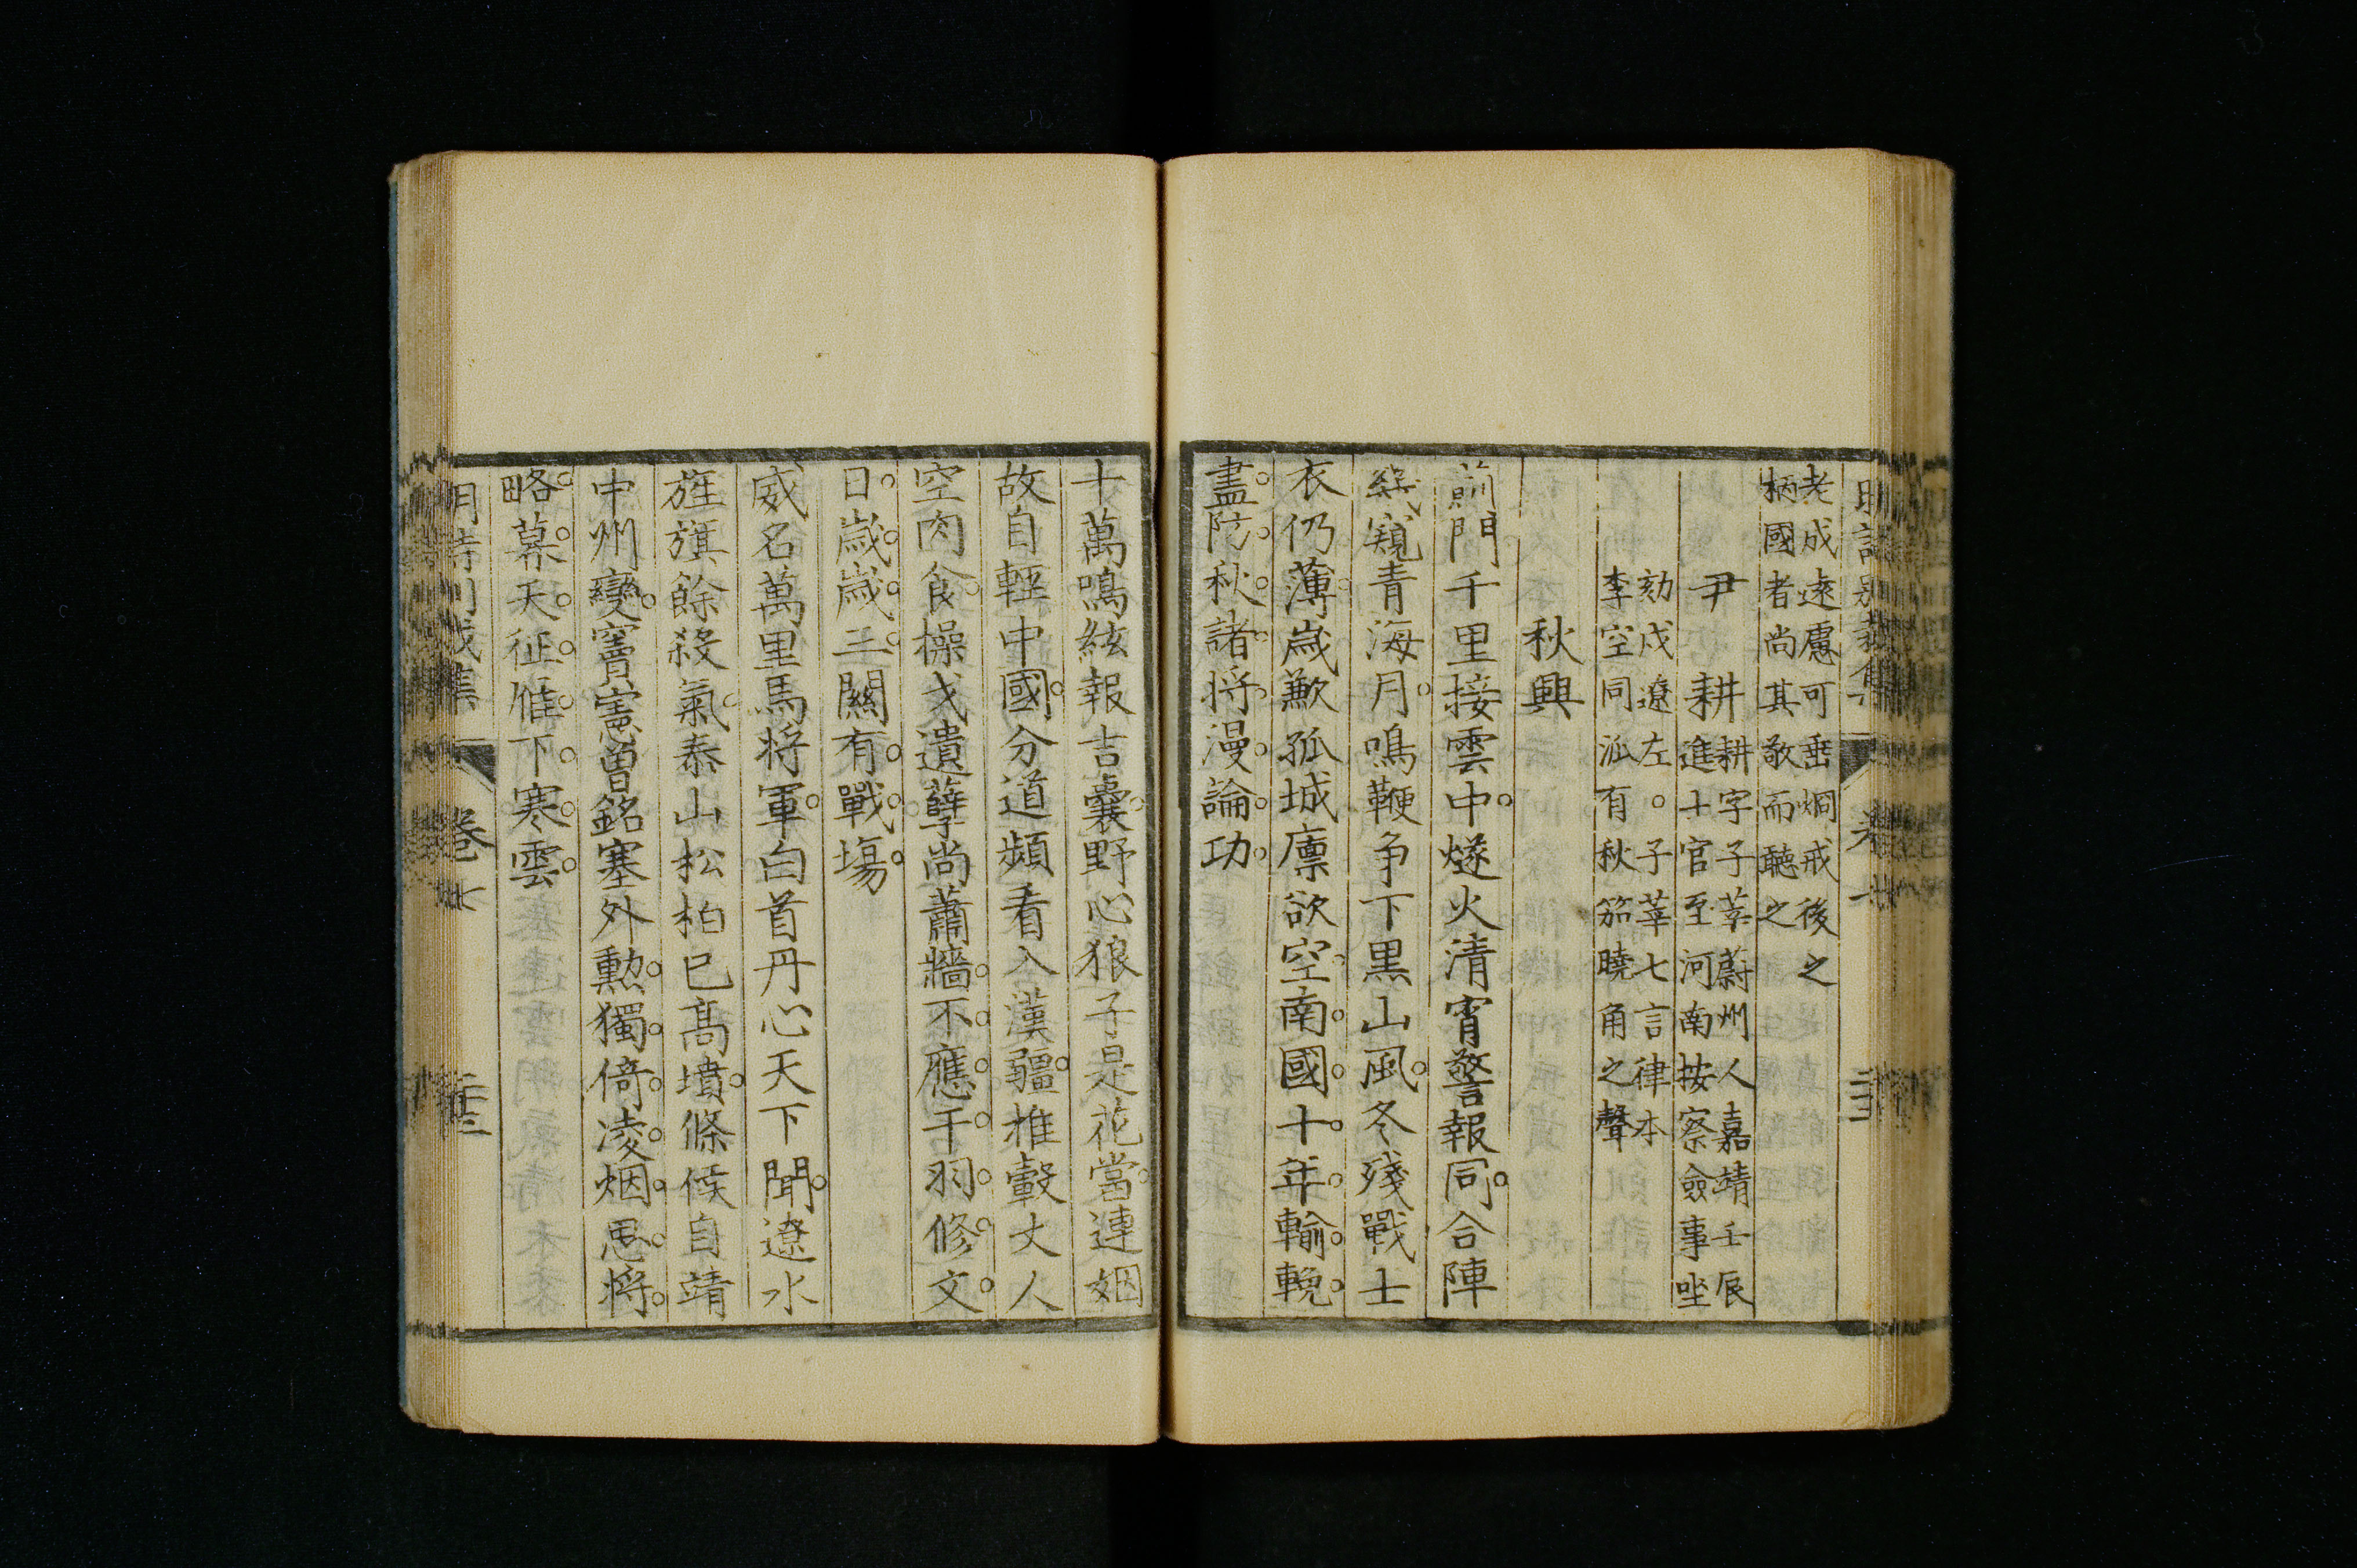 明詩別裁集
卷七
二十三
老成遠慮可垂炯戒後之
柄國者尚其敬而聽之
尹耕
耕字子莘蔚州人嘉靖壬辰
進士官至河南按察僉事坐
劾戍遼左。子莘七言律本
李空同派有秋笳曉角之聲
秋興
薊門千里接雲中燧火清宵警報同合陣
窺青海月鳴鞭爭下黒山風冬殘戰士
衣仍薄歲歉孤城廩欲空南國十年輸輓
盡防秋諸將漫論功
十萬鳴絃報吉囊野心狼子是花當連姻
故自輕中國分道頻看入漢疆推轂丈人
空肉食操戈遺孽尚蕭牆不應干羽修文
日歲歲三關有戰塲
威名萬里馬將軍白首丹心天下聞遼水
旌旗餘殺氣泰山松柏已高墳條侯自靖
中州變竇憲曽銘塞外勲獨倚凌烟思將
略暮天征雁下寒雲
明詩別裁集
卷七
二十三